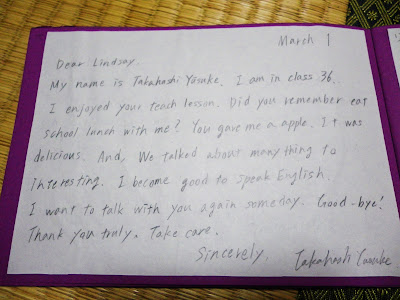 March 1
Dear Lindsay.
My name is Takahashi Yosuke. I am in class 36.
I enjoyed your teach lesson. Did you remember eat
school lunch with me? You gave me a apple. It was
delicious. And, We talked about many thing to
interesting. I become good to speak English.
I want to talk with you again someday. Good-bye!
Thank you truly. Take care.
Sincerely, Takahashi